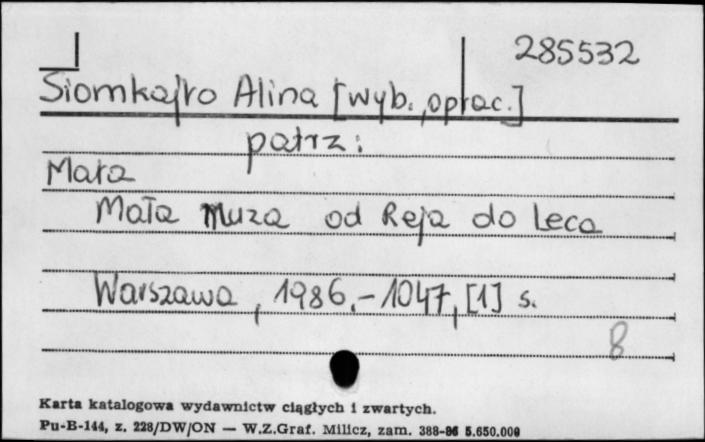 285532
Siomkajło Alina [wyb., oprac.]
patrz:
Mała
Mała muza od Reja do Leca
Warszawa, 1986.-1047, [1] s.
8
Karta katalogowa wydawnictw ciągłych i zwartych.
Pu-B-144, z. 228/DW/ON — W.Z.Graf. Milicz, zam. 388-86 5.650.000